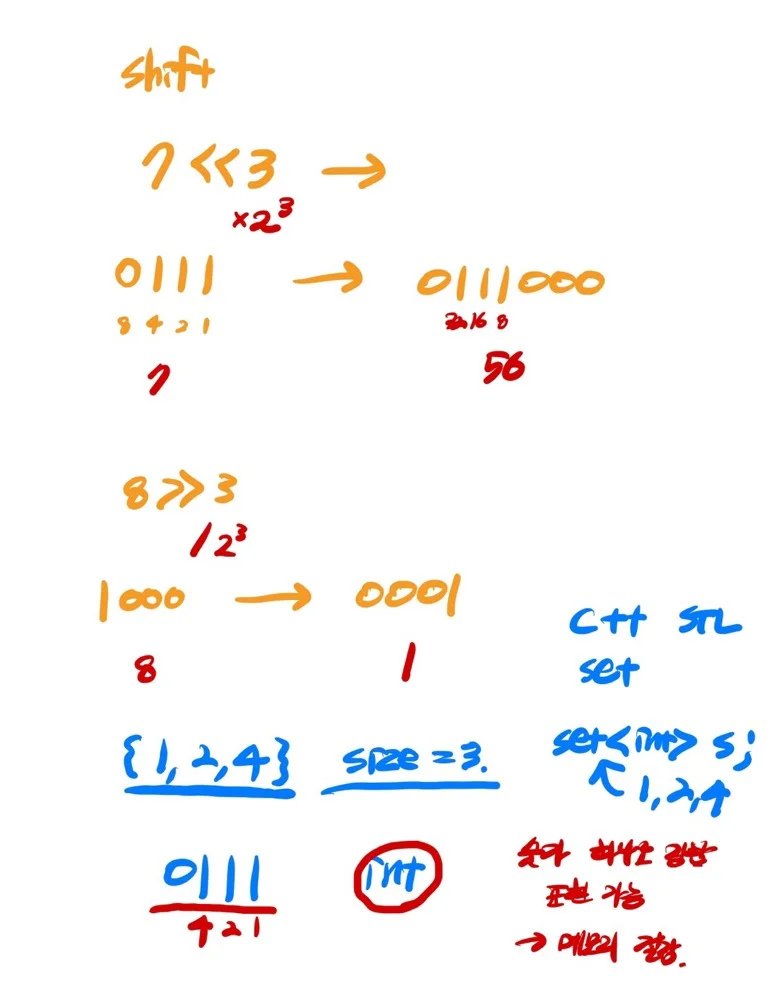 shift
7 << 3 →
×2³
0111 → 0111000
8 4 2 1
16 8
7
56
8 >> 3
/ 2³
1000 → 0001
8
1
C++ STL
set
{1, 2, 4} size = 3.
set<int> s;
1, 2, 4
0111 int
4 2 1
숫자 하나로 집합
표현 가능
→ 메모리 절약.